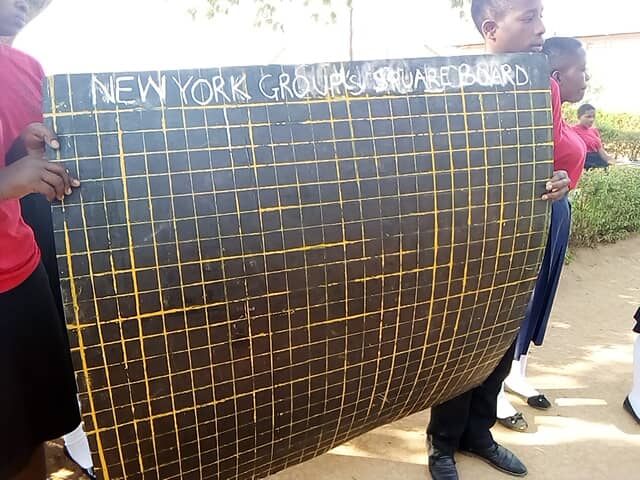 NEW YORK GROUP'S SQUARE BOARD